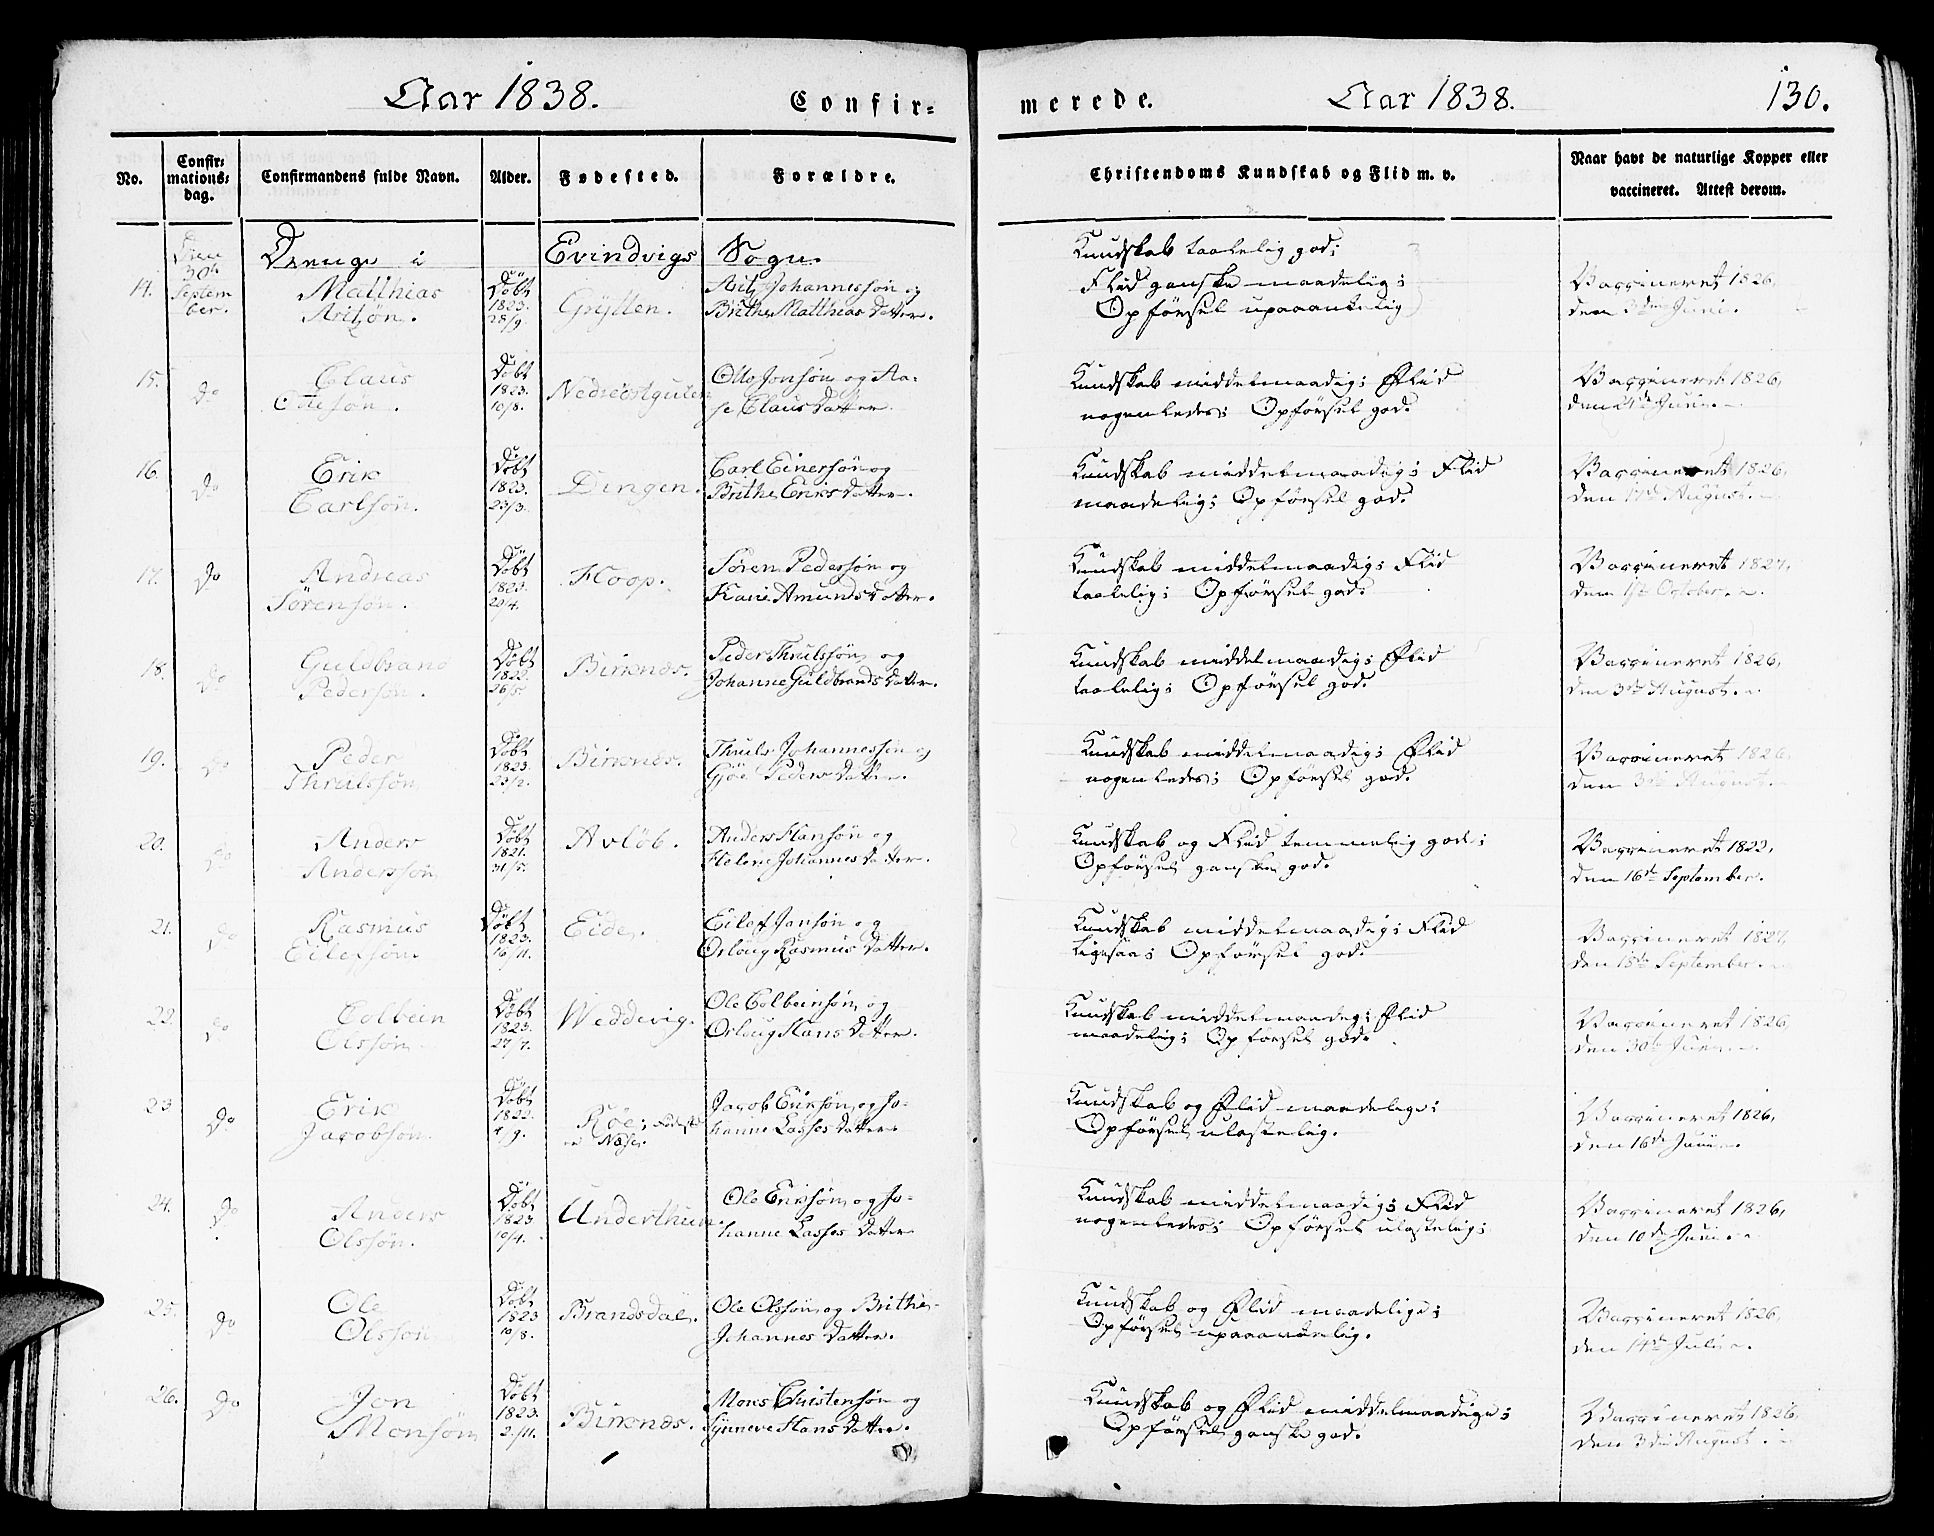 Aar 1838. Confir-
merede. Aar 1838. 130.
No. Confirmationsdag. Confirmandens fulde Navn. Alder. Fødested. Forældre. Christendoms Kundskab og Flid m. v. Naar havt de naturlige Kopper eller vaccineret. Attest derom.
Drenge i Evindvigs Sogn.
14. Den 30te September. Matthias Döbt 1823. 28/9. Johannessön og
Brithe Matthias Datter. Kundskab taalelig god;
Flid ganske maadelig;
Opførsel upaaankelig Vaccineret 1826,
den 3die Juni.
15. do Claus
Ottesön. Döbt 1823. 10/8. Nedreöstgulen Otto Jonsön og Aa-
se Claus Datter. Kundskab middelmaadig; Flid
nogenledes; Opførsel god. Vaccineret 1826,
16. do Erik
Carlsön. Döbt 1823. 23/3. Dingen. Carl Einersön og
Brithe Eriks Datter. Kundskab middelmaadig; Flid
maadelig; Opførsel god. Vaccineret 1826,
den 17de August.
17. do Andreas
Sörensön. Döbt 1823. 20/4. Hoop. Sören Pedersön og
Kari Amunds Datter. Kundskab middelmaadig; Flid
taalelig; Opførsel god. Vaccineret 1827,
den 1ste October.
18. do Guldbrand
Pedersön. Döbt 1822. 26/5. Birknæs. Peder Thrulssön og
Johanne Guldbrands Datter. Kundskab middelmaadig; Flid
taalelig; Opførsel god. Vaccineret 1826,
den 3die August.
19. do Peder
Thrulssön Döbt 1823. 23/2. Birknæs. Thruls Johannessön og
Gjöe Peders Datter. Kundskab middelmaadig; Flid
nogenledes; Opførsel god. Vaccineret 1826,
den 3die August.
20. do Anders
Anderssön Döbt 1821. 31/5. Avlöb. Anders Hansön og
Helene Johannes Datter. Kundskab og Flid temmelig god;
Opførsel ganske god. Vaccineret 1822,
den 16de September.
21. do Rasmus
Eilefsön. Döbt 1823. 16/11. Eide. Eilef Jonsön og
Orloug Rasmus Datter. Kundskab middelmaadig; Flid
ligesaa; Opførsel god. Vaccineret 1827,
den 18de September.
22. do Colbein
Olssön Döbt 1823. 27/7. Weddevig. Ole Colbeinsön og
Orloug Hans Datter. Kundskab middelmaadig; Flid
maadelig; Opførsel god. Vaccineret 1826,
23. do Erik
Jacobsön. Döbt 1822. Röe; Jacob Eriksön og Jo-
hanne Lasses Datter Kundskab og Flid maadelige;
Opførsel ulastelig. Vaccineret 1826,
den 16de Juni.
24. do Anders
Olssön. Döbt 1823. 10/4. Underthun. Ole Eriksön og Jo-
hanne Lasses Datter Kundskab middelmaadig; Flid
nogenledes; Opførsel ulastelig; Vaccineret 1826,
den 10de Juni.
25. do Ole
Olssön Döbt 1823 10/8. Brandsdal. Ole Olssön og Brithe
Johannes Datter. Kundskab og Flid maadelige;
Opførsel upaaankelig. Vaccineret 1826,
den 14de Juli.
26. do Jon
Monsön Döbt 1823. 2/11. Birknæs. Mons Christensön og
Synneve Hans Datter. Kundskab og Flid middelmaadige;
Opførsel ganske god. Vaccineret 1826,
den 3die August.